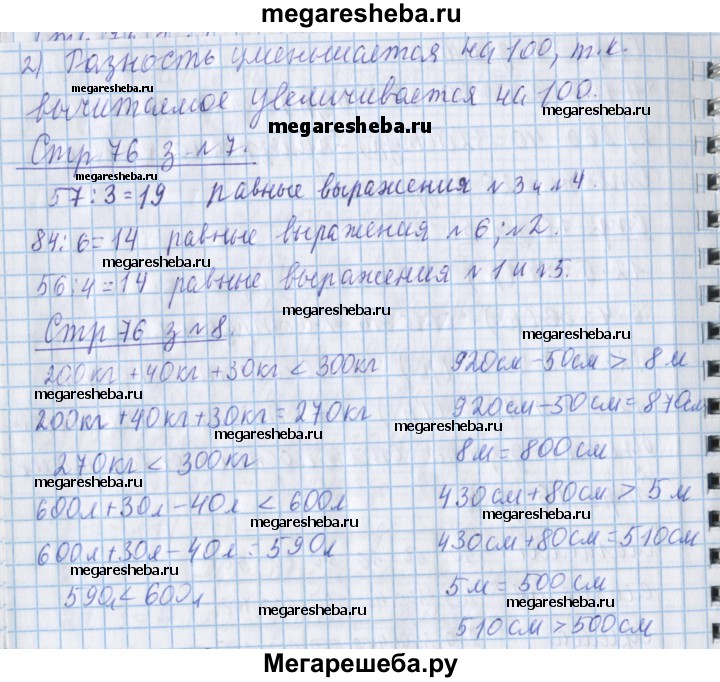 megaresheba.ru
2) Разность уменьшается на 100, т.к.
megaresheba.ru
вычитаемое увеличивается на 100.
megaresheba.ru
Стр 76 з №7.
57:3=19 равные выражения №3 и №4.
megaresheba.ru
84:6=14 равные выражения №6; №2.
megaresheba.ru
56:4=14 равные выражения №1 и №5.
megaresheba.ru
Стр 76 з №8.
megaresheba.ru
200кг +40кг +30кг < 300кг
920см -50см > 8м
megaresheba.ru
megaresheba.ru
200кг +40кг+30кг = 270кг
920см-50см=870см
megaresheba.ru
270кг < 300кг
8м = 800см
megaresheba.ru
600л+30л-40л < 600л
430см+80см > 5м
megaresheba.ru
megaresheba.ru
600л+30л-40л=590л
430см+80см=510см
megaresheba.ru
590л<600л
5м = 500см
megaresheba.ru
megaresheba.ru
510см>500см
Мегарешеба.ру